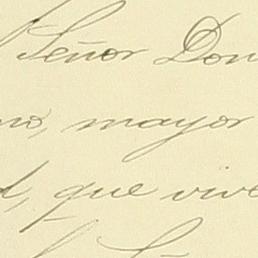 Señor Don
no, mayor
d, que vive